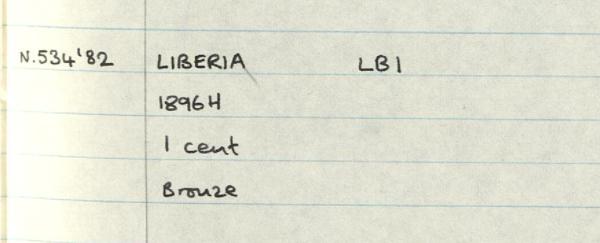 N.534'82 LIBERIA LB1
1896H
1 cent
Bronze